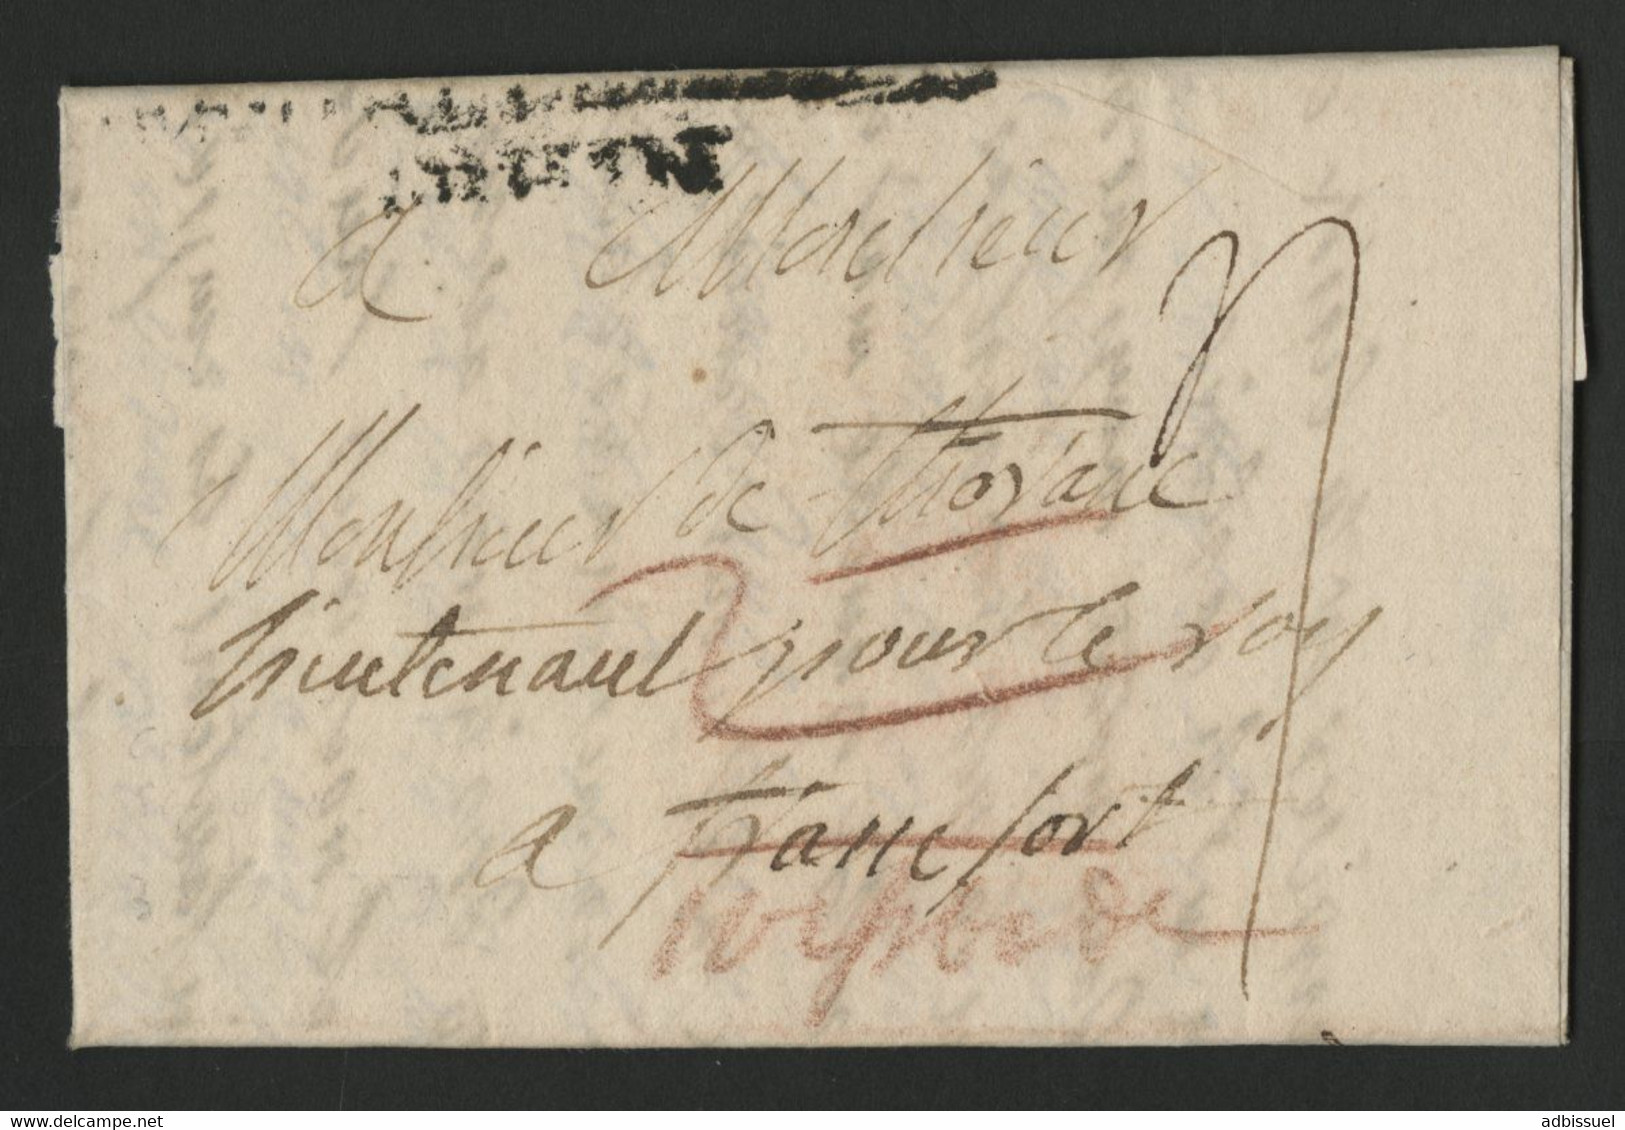 a Monsieur
Monsieur de Thorane
Lieutenant pour le roy
a francfort
wisbade
adbissuel